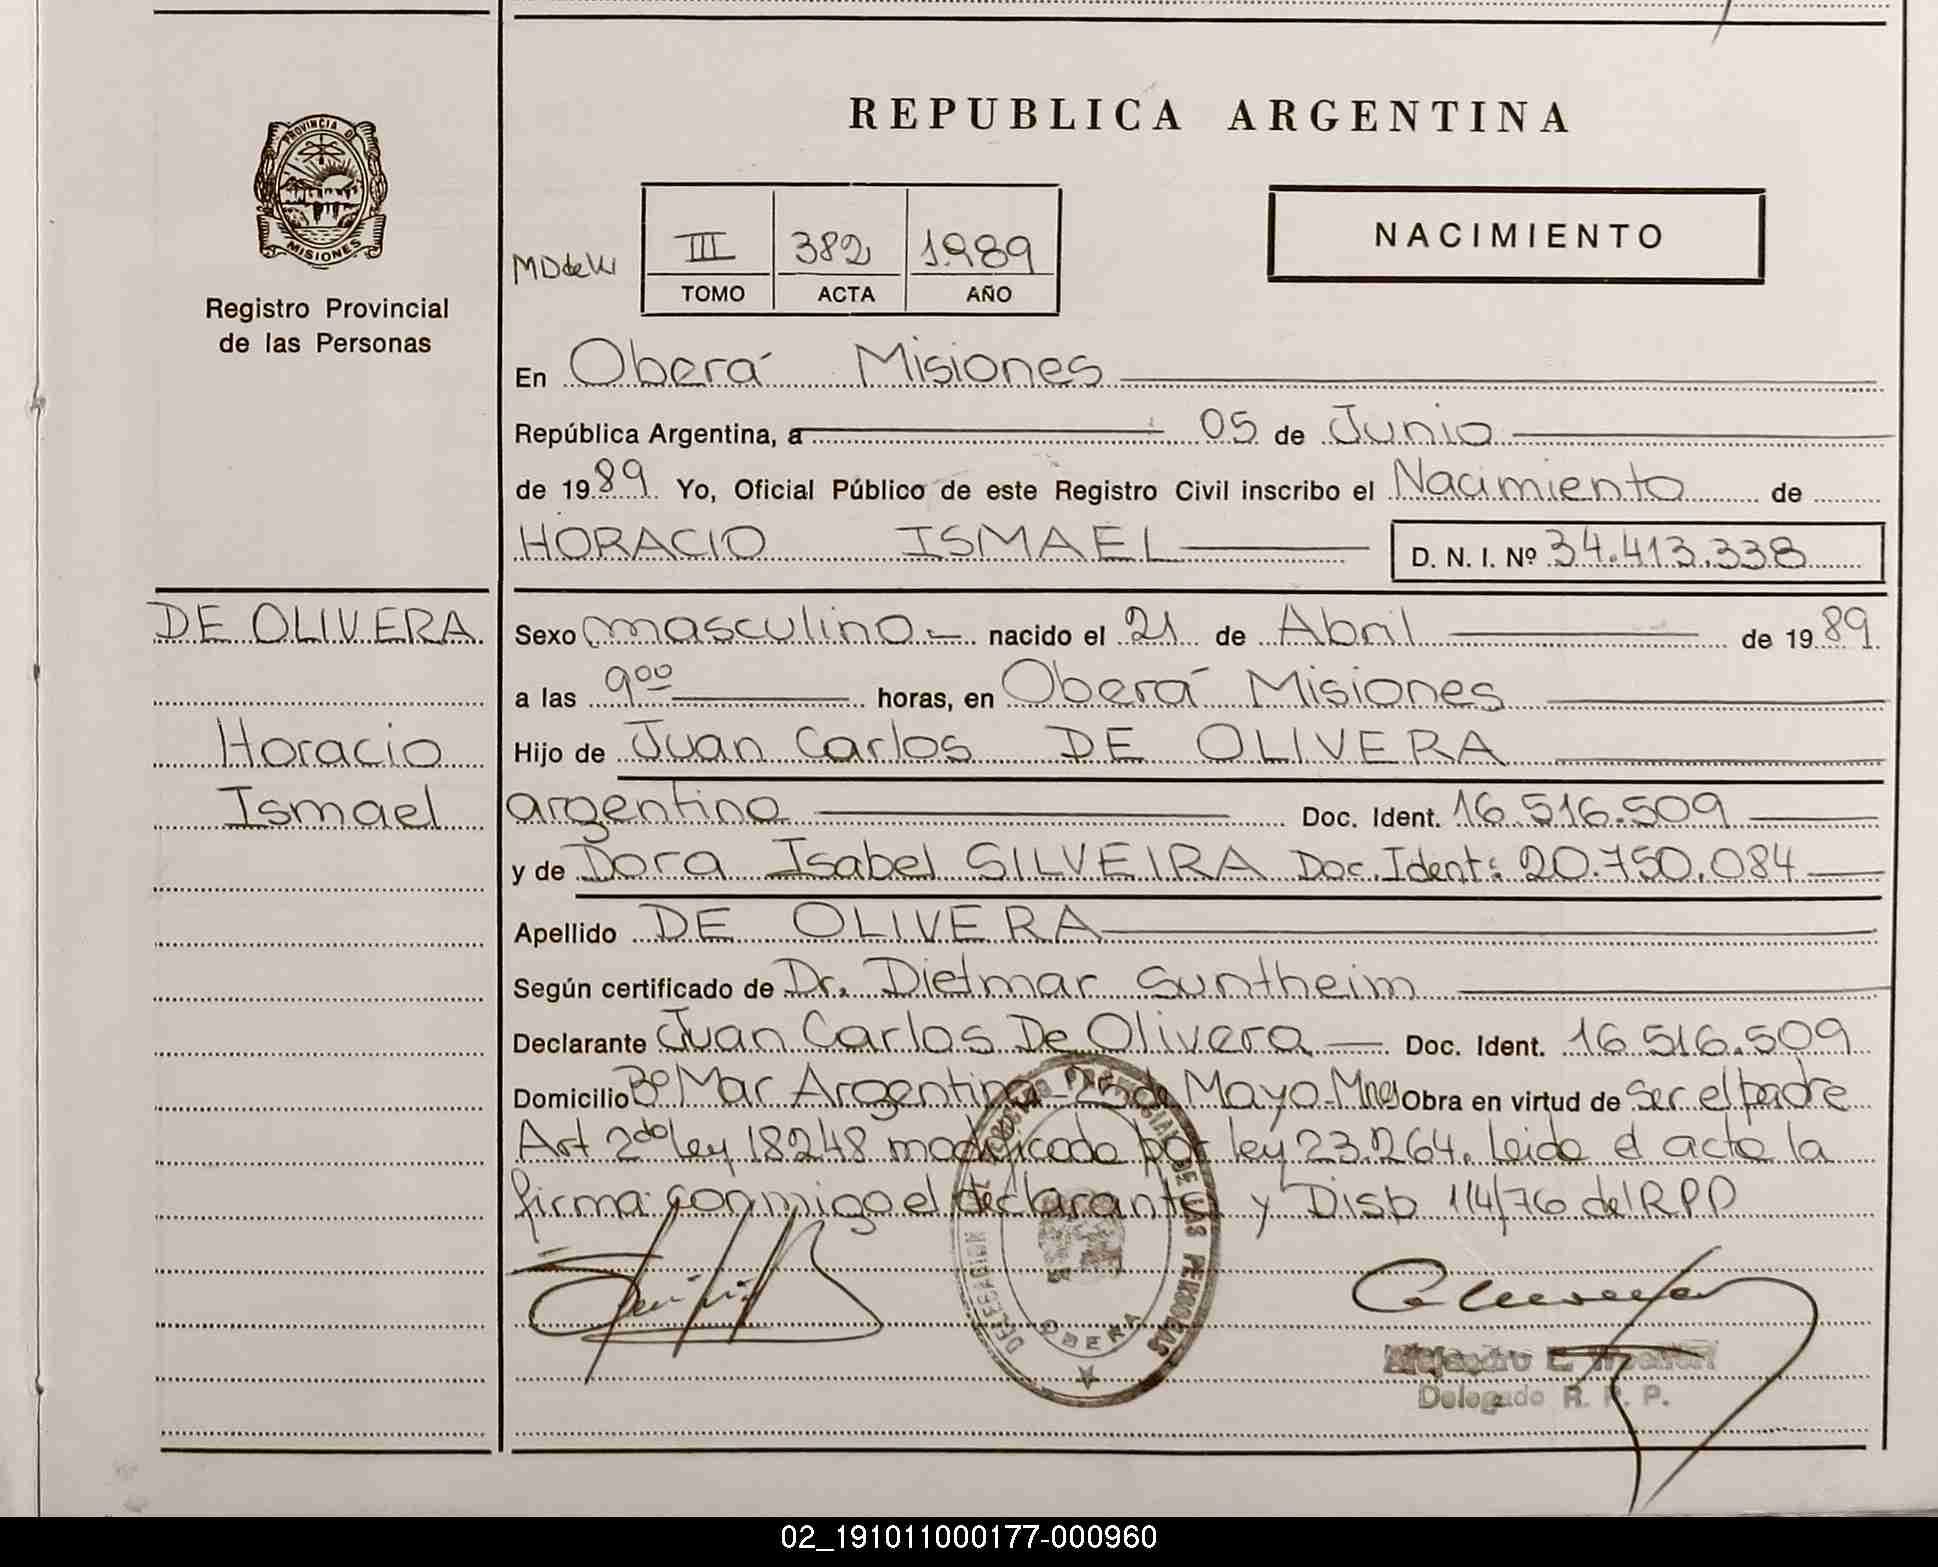 REPUBLICA ARGENTINA
PROVINCIA D
MISIONES
Registro Provincial
de las Personas
III 382 1989
TOMO ACTA AÑO
NACIMIENTO
En Oberá Misiones
República Argentina, a 05 de Junio
de 1989 Yo, Oficial Público de este Registro Civil inscribo el Nacimiento de
HORACIO ISMAEL D. N. I. Nº 34.413.338
DE OLIVERA
Horacio
Ismael
Sexo masculino nacido el 21 de Abril de 1989
a las 9ºº horas, en Oberá Misiones
Hijo de Juan Carlos DE OLIVERA
argentino Doc. Ident. 16.516.509
y de Dora Isabel SILVEIRA Doc. Ident: 20.750.084
Apellido DE OLIVERA
Según certificado de Dr. Dietmar Suntheim
Declarante Juan Carlos De Olivera Doc. Ident. 16.516.509
Domicilio Bº Mar Argentino 25 de Mayo-Mnes Obra en virtud de ser el padre
Art 2do ley 18248 modificado por ley 23.264. Leida el acta la
firma conmigo el declarante y Disp 114/76 del RPP
DELEGACION DEL REGISTRO PROVINCIAL DE LAS PERSONAS
OBERA
Delegado R. P. P.
02_191011000177-000960